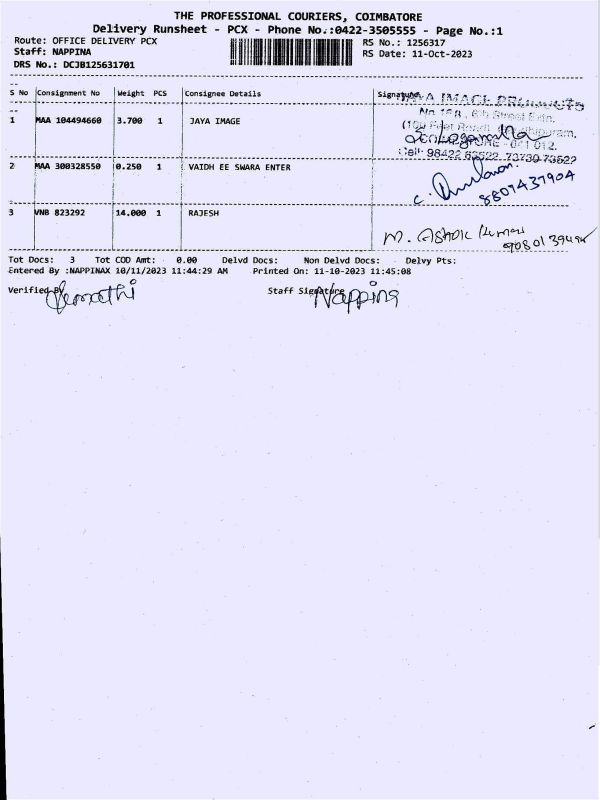 THE PROFESSIONAL COURIERS, COIMBATORE
Delivery Runsheet - PCX - Phone No.:0422-3505555 - Page No.:1
Route: OFFICE DELIVERY PCX RS No.: 1256317
Staff: NAPPINA RS Date: 11-Oct-2023
DRS No.: DCJB125631701
S No Consignment No Weight PCS Consignee Details Signature
1 MAA 104494660 3.700 1 JAYA IMAGE
JAYA IMAGE PRODUCTS
Cell: 98422 62522, 73730 73522
2 MAA 300328550 0.250 1 VAIDH EE SWARA ENTER
8807437904
3 VNB 823292 14.000 1 RAJESH
M. Ashok Kumar
Tot Docs: 3 Tot COD Amt: 0.00 Delvd Docs: Non Delvd Docs: Delvy Pts:
Entered By :NAPPINAX 10/11/2023 11:44:29 AM Printed On: 11-10-2023 11:45:08
Verified By Staff Signature
Nappina